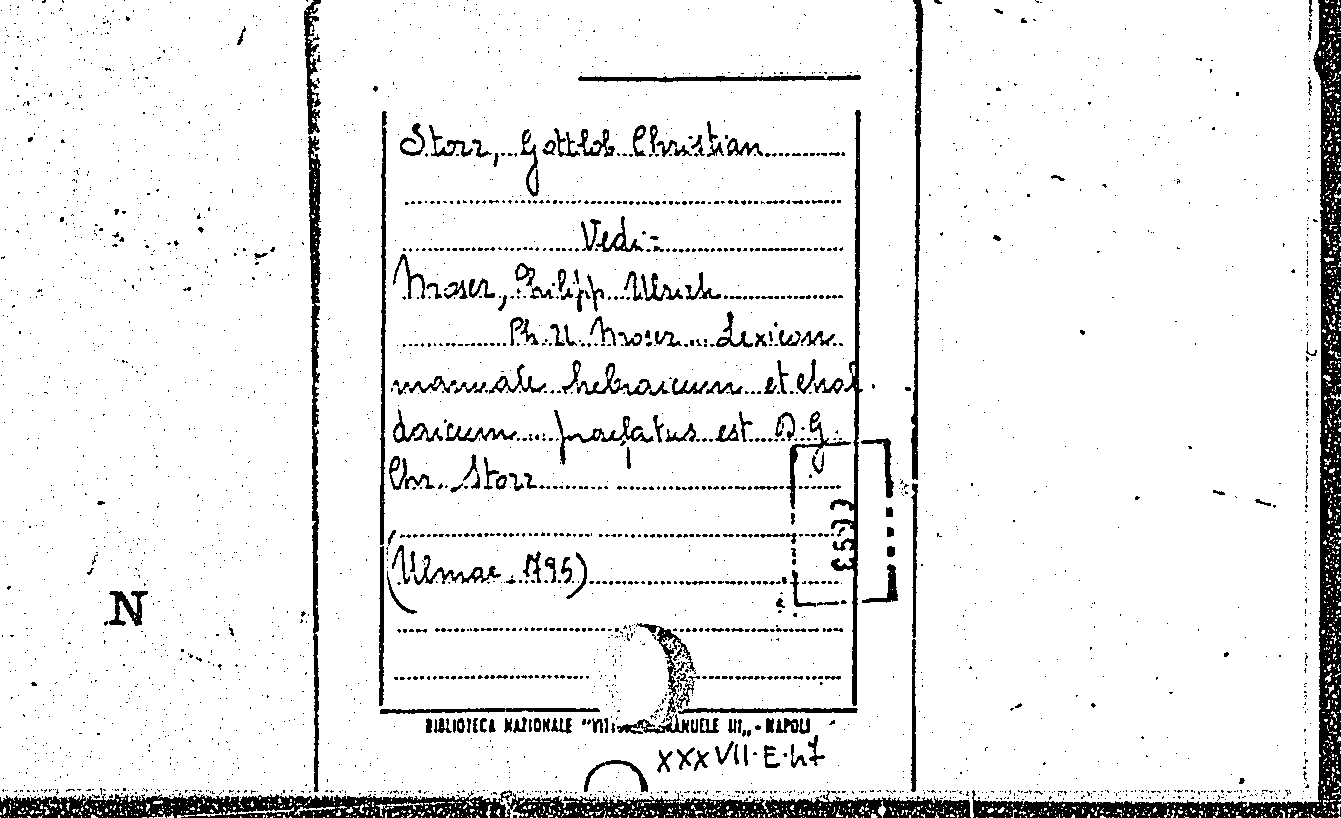 Storr, Gottlob Christian
Vedi:
Moser, Philipp Ulrich
Ph. U. Moser... Lexicon
manuale hebraicum et chal-
daicum... praefatus est D. G.
Chr. Storr
(Ulmae, 1795)
N
BIBLIOTECA NAZIONALE "VITT ANUELE III„ - NAPOLI
XXXVII·E·47